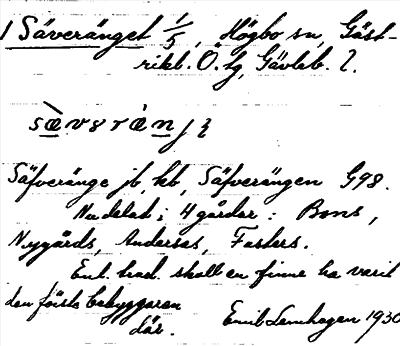 1 Säveränget 1/5, Högbo sn, Gäst-
rikl. Ö. tg, Gävleb. l.
Säfveränge jb, kb, Säfverängen G98.
Nu delat i 4 gårdar: Bons,
Nygårds, Anderses, Fasters.
Enl. trad. skall en finne ha varit
den förste bebyggaren
där. Emil Lemhagen 1930